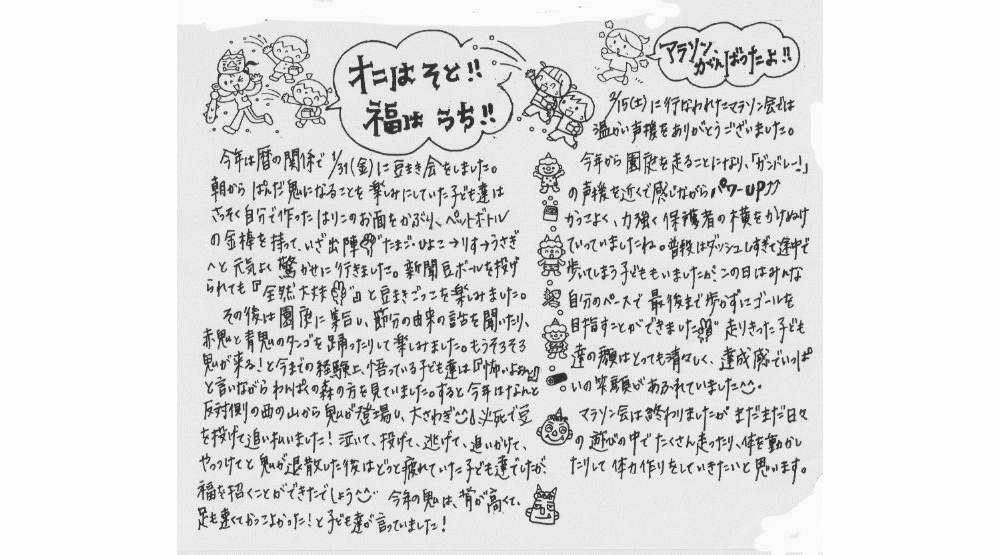 オニはそと!!
福はうち!!
今年は暦の関係で1/31(金)に豆まき会をしました。
朝から ぱんだ鬼になることを楽しみにしていた子ども達は
さっそく自分で作ったはりこのお面をかぶり、ペットボトル
の金棒を持って、いざ出陣 たまご・ひよこ→りす→うさぎ
へと元気よく驚かせに行きました。新聞豆ボールを投げ
られても『全然大丈夫』と豆まきごっこを楽しみました。
その後は園庭に集合し、節分の由来の話を聞いたり、
赤鬼と青鬼のタンゴを踊ったりして楽しみました。もうそろそろ
鬼が来る!と今までの経験上、悟っている子ども達は『怖いよぉぉ』
と言いながらわんぱくの森の方を見ていました。すると今年はなんと
反対側の西の山から鬼が登場し、大さわぎ 必死で豆
を投げて追い払いました!泣いて、投げて、逃げて、追いかけて、
やっつけてと鬼が退散した後はどっと疲れていた子ども達でしたが、
福を招くことができたでしょう^^ 今年の鬼は、背が高くて、
足も速くてかっこよかった!と子ども達が言っていました!
マラソン、
がんばったよ!!
2/15(土)に行なわれたマラソン会では
温かい声援をありがとうございました。
今年から園庭を走ることになり、「ガンバレー!」
の声援を近くで感じながらパワーUP
かっこよく、力強く保護者の横をかけぬけ
ていっていましたね。普段はダッシュしすぎて途中で
歩いてしまう子どももいましたが、この日はみんな
自分のペースで最後まで歩かずにゴールを
目指すことができました 走りきった子ども
達の顔はとっても清々しく、達成感でいっぱ
いの笑顔があふれていました^^。
マラソン会は終わりましたが まだまだ日々
の遊びの中でたくさん走ったり、体を動かし
たりして体力作りをしていきたいと思います。